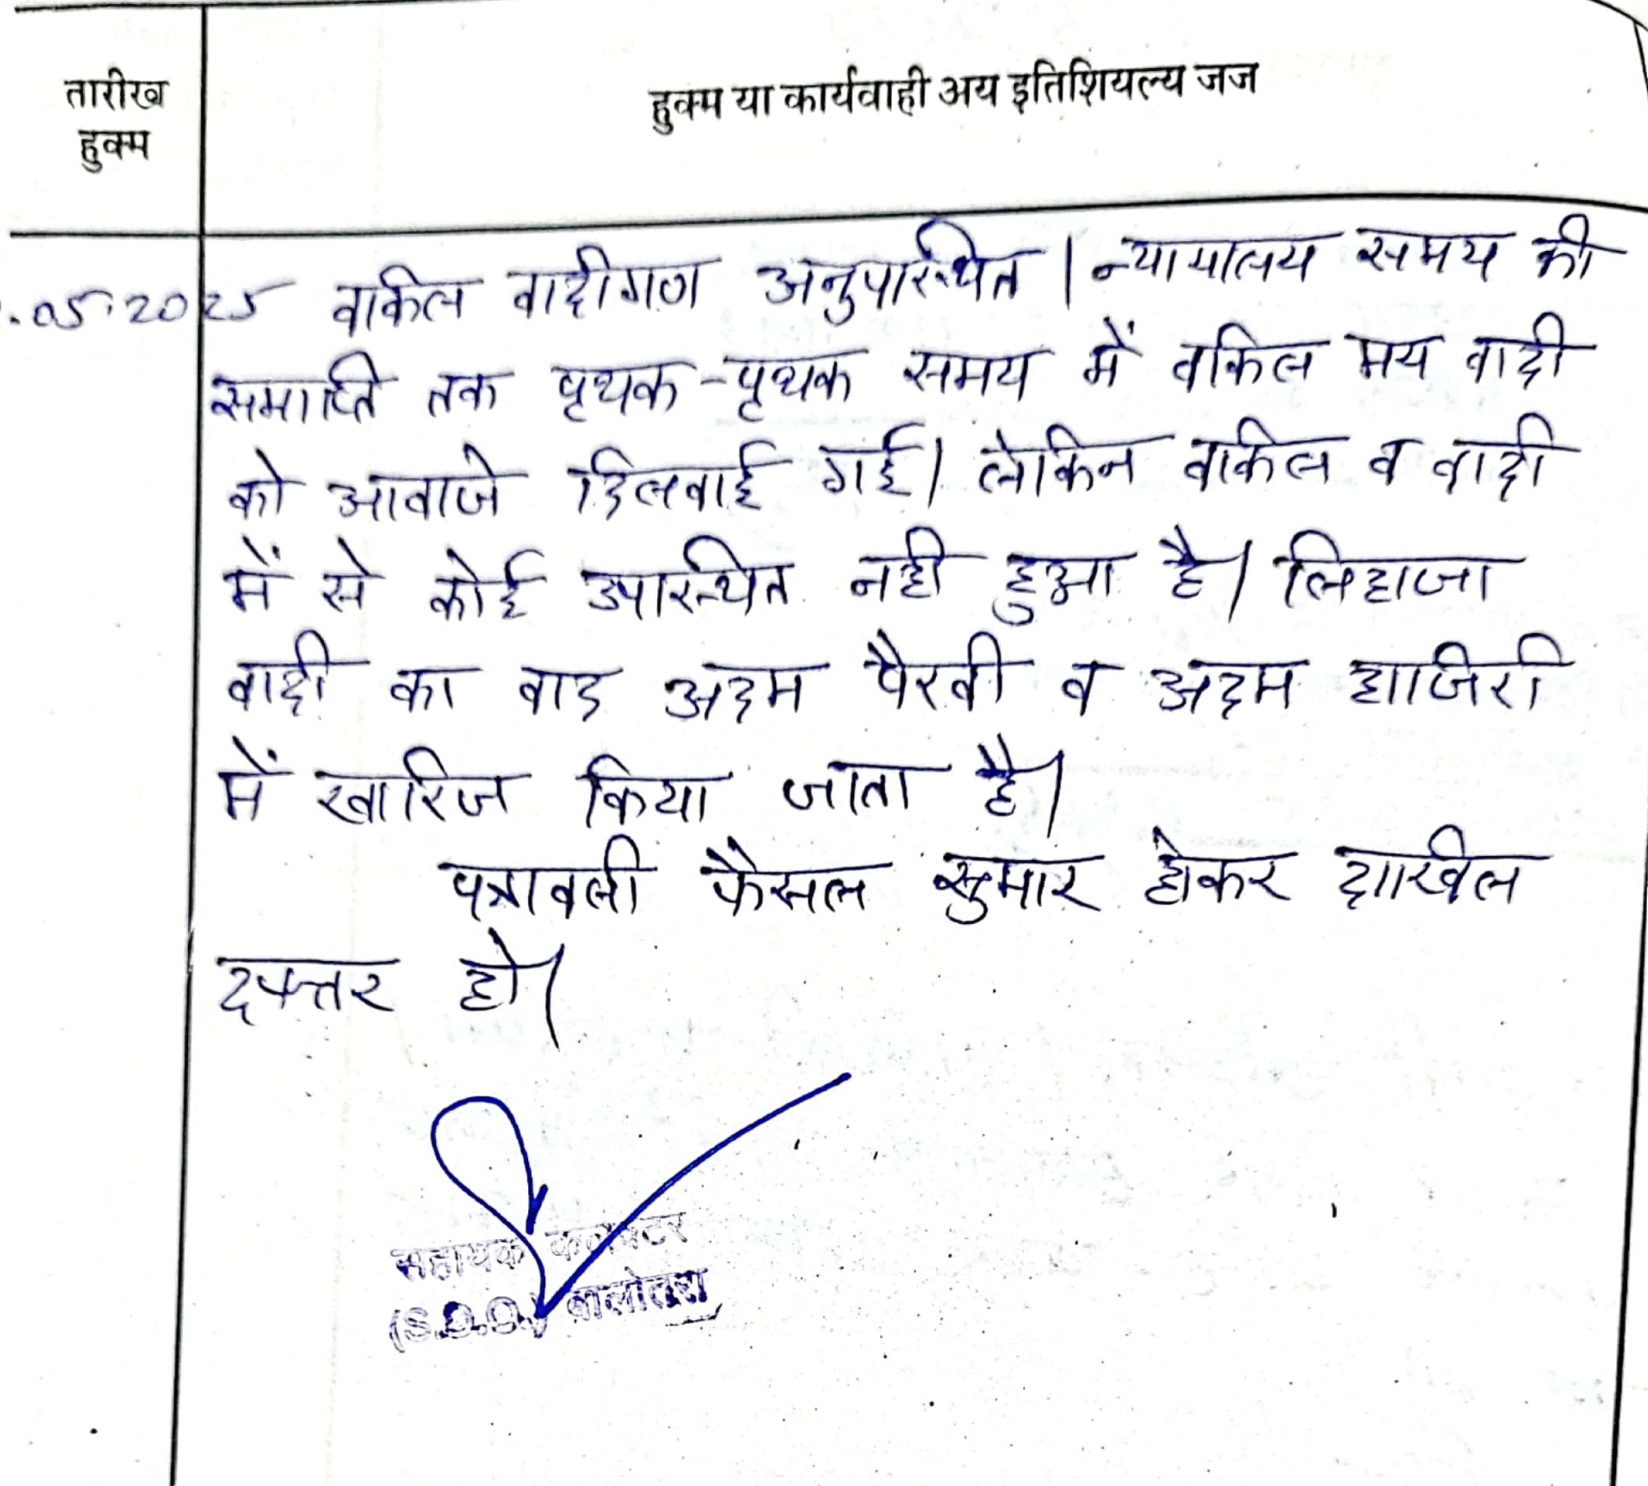 तारीख
हुक्म
हुक्म या कार्यवाही अय इतिशियल्य जज
.05.2025 वकिल वादीगण अनुपस्थित। न्यायालय समय की
समाप्ति तक पृथक-पृथक समय में वकिल मय वादी
को आवाजे दिलवाई गई। लेकिन वकिल व वादी
में से कोई उपस्थित नही हुआ है। लिहाजा
वादी का वाद अदम पैरवी व अदम हाजिरी
में खारिज किया जाता है।
पत्रावली फैसल सुमार होकर दाखिल
दफ्तर हो।
सहायक कलक्टर
(S.D.O.) बालोतरा